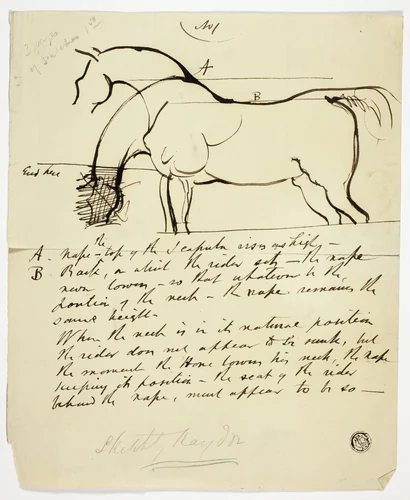 No 1
A
B
End here
A. the nape - top of the Scapula rises as high -
B. Back, on which the rider sits - the nape
never lowers - so that whatever be the
position of the neck - the nape remains the
same height -
When the neck is in its natural position
the rider does not appear to be sunk, but
the moment the Horse lowers his neck, the nape
keeping its position - the seat of the rider
behind the nape, must appear to be so -
Sketch Haydon